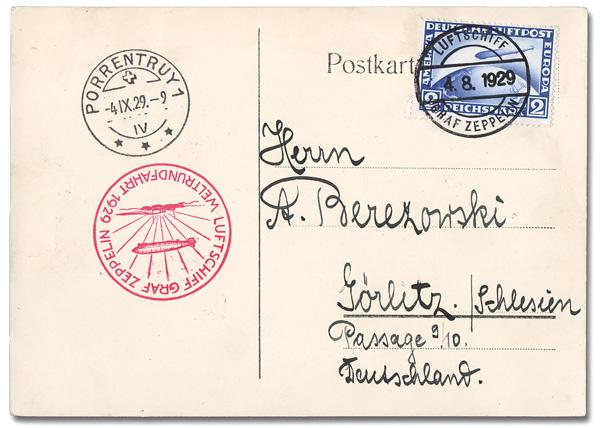 Postkarte
AMERIKA DEUTSCHE LUFTPOST EUROPA
2 REICHSMARK 2
LUFTSCHIFF
4.8.1929
GRAF ZEPPELIN
PORRENTRUY 1
-4 IX.29.-9
IV
LUFTSCHIFF GRAF ZEPPELIN
WELTRUNDFAHRT 1929
Herrn
A. Berezowski
Görlitz. / Schlesien
Passage 9/10.
Deutschland.